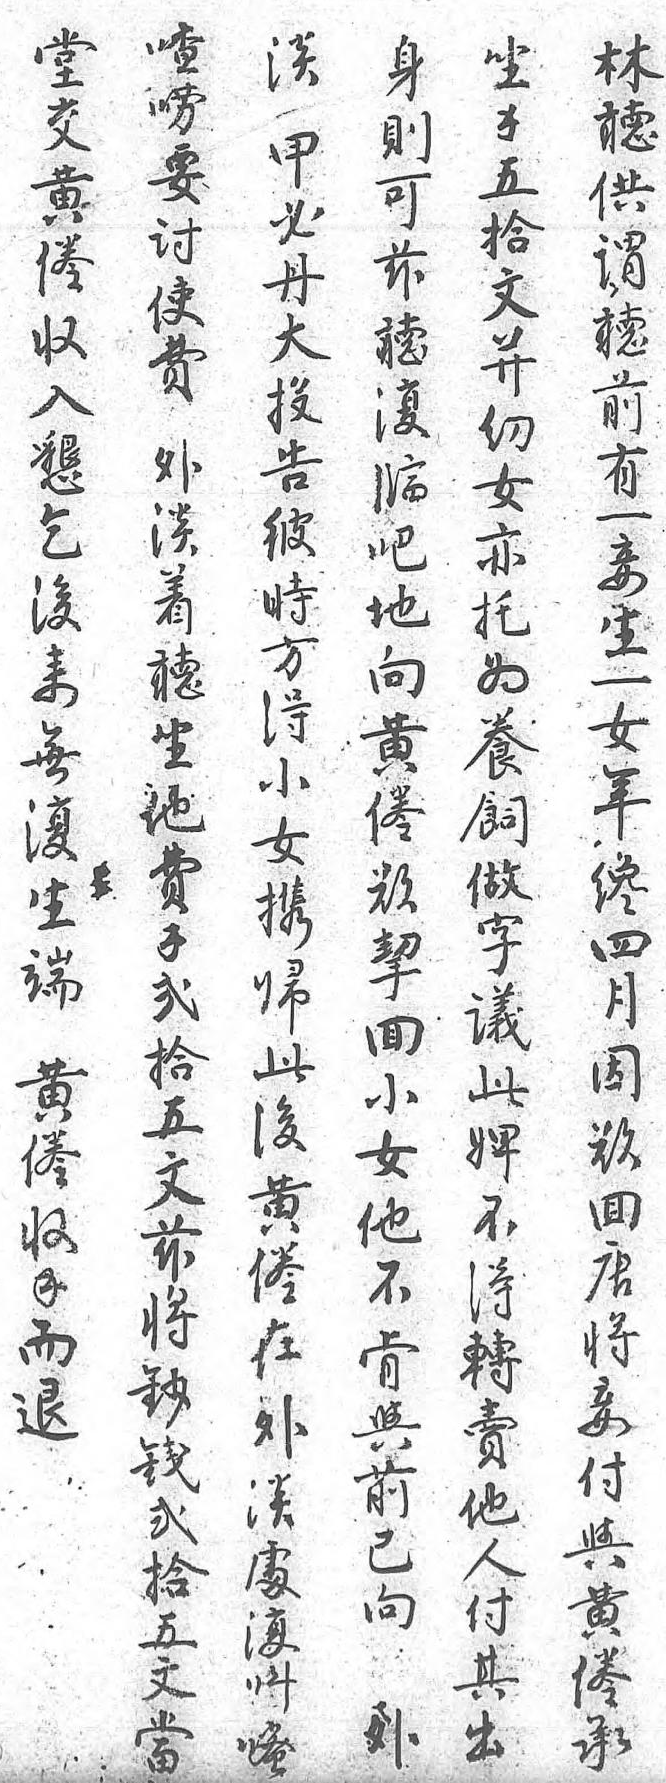 林聴供謂聴前有一妾生一女年纔四月因欲回唐将妾付與黄倦承
坐子五拾文并幼女亦托为養飼做字議此婢不得轉賣他人付其出
身則可茲聴復臨吧地向黄倦欲挈回小女他不肯與前已向 外
淡 甲必丹大投告彼時方得小女携歸此後黄倦在外淡處復叫嗞
喳唠要討使費 外淡着聴坐訑費子弍拾五文茲将鈔錢弍拾五文當
堂交黄倦收入懇乞後来無復生端 黄倦收子而退